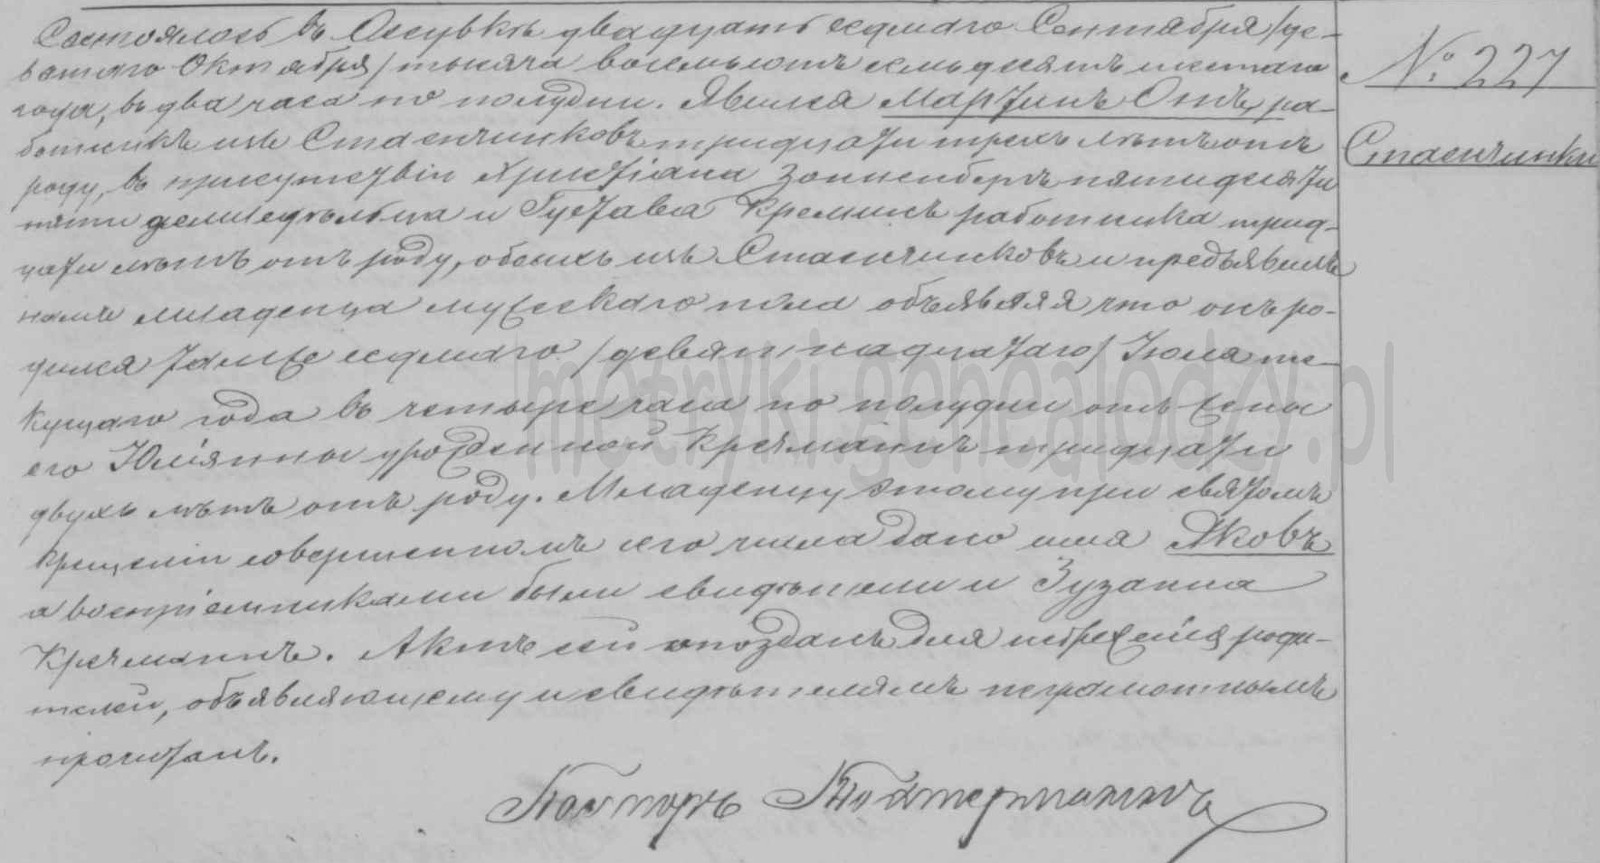 Состоялось въ Осувкѣ двадцать седмаго Сентября /де-
вятаго Октября/ тысяча восемьсотъ семьдесятъ шестаго
года, въ два часа по полудни. Явился Мартинъ Отъ, ра-
ботникъ изъ Стаенчинковъ тридцати трехъ лѣтъ отъ
роду, въ присутствіи Христіана Зонненбергъ пятидесяти
пяти земледѣльца и Густава Кремпинъ работника трид-
цати лѣтъ отъ роду, обоихъ изъ Стаенчинковъ и предъявилъ
намъ младенца мужескаго пола объявляя что онъ ро-
дился тамже седмаго /девятнадцатаго/ Іюля те-
кущаго года въ четыре часа по полудни отъ жены
его Юліянны урожденной Кречманнъ тридцати
двухъ лѣтъ отъ роду. Младенцу этому при святомъ
крещеніи совершенномъ сего числа дано имя Яковъ
а воспріемниками были свидѣтели и Зузанна
Кречманнъ. Актъ сей опозданъ для небреженія роди-
телей, объявляющему и свидѣтелямъ неграмотнымъ
прочитанъ.
Пасторъ
№ 227
Стаенчинки
metryki.genealodzy.pl